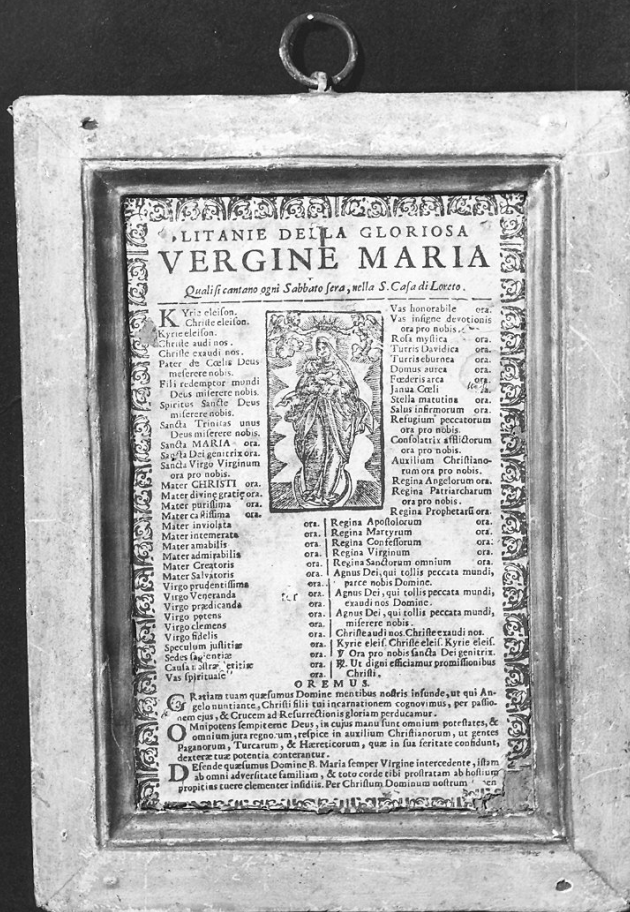 LITANIE DELLA GLORIOSA
VERGINE MARIA
Quali si cantano ogni Sabbato sera, nella S. Casa di Loreto.
KYrie eleison.
Christe eleison.
Kyrie eleison.
Christe audi nos.
Christe exaudi nos.
Pater de Cœlis Deus
miserere nobis.
Fili redemptor mundi
Deus miserere nobis.
Spiritus Sancte Deus
miserere nobis.
Sancta Trinitas unus
Deus miserere nobis.
Sancta MARIA ora.
Sancta Dei genitrix ora.
Sancta Virgo Virginum
ora pro nobis.
Mater CHRISTI ora.
Mater divinę gratię ora.
Mater purissima ora.
Mater castissima ora.
Mater inviolata ora.
Mater intemerata ora.
Mater amabilis ora.
Mater admirabilis ora.
Mater Creatoris ora.
Mater Salvatoris ora.
Virgo prudentissima ora.
Virgo Veneranda ora.
Virgo prædicanda ora.
Virgo potens ora.
Virgo clemens ora.
Virgo fidelis ora.
Speculum justitiæ ora.
Sedes sapientiæ ora.
Causa nostræ letitiæ ora.
Vas spirituale ora.
Vas honorabile ora.
Vas insigne devotionis
ora pro nobis.
Rosa mystica ora.
Turris Davidica ora.
Turris eburnea ora.
Domus aurea ora.
Fœderis arca ora.
Janua Cœli
Stella matutina ora.
Salus infirmorum ora.
Refugium peccatorum
ora pro nobis.
Consolatrix afflictorum
ora pro nobis.
Auxilium Christiano-
rum ora pro nobis.
Regina Angelorum ora.
Regina Patriarcharum
ora pro nobis.
Regina Prophetarũ ora.
Regina Apostolorum ora.
Regina Martyrum ora.
Regina Confessorum ora.
Regina Virginum ora.
Regina Sanctorum omnium ora.
Agnus Dei, qui tollis peccata mundi,
parce nobis Domine.
Agnus Dei, qui tollis peccata mundi,
exaudi nos Domine.
Agnus Dei, qui tollis peccata mundi,
miserere nobis.
Christe audi nos. Christe exaudi nos.
Kyrie eleis. Christe eleis. Kyrie eleis.
℣ Ora pro nobis sancta Dei genitrix.
℟. Ut digni efficiamus promissionibus
Christi.
OREMUS.
GRatiam tuam quæsumus Domine mentibus nostris infunde, ut qui An-
gelo nuntiante, Christi filii tui incarnationem cognovimus, per passio-
nem ejus, & Crucem ad Resurrectionis gloriam perducamur.
OMnipotens sempiterne Deus, in cujus manu sunt omnium potestates, &
omnium jura regnorum, respice in auxilium Christianorum, ut gentes
Paganorum, Turcarum, & Hæreticorum, quæ in sua feritate confidunt,
dexteræ tuæ potentia conterantur.
DEfende quæsumus Domine B. Maria semper Virgine intercedente, istam
ab omni adversitate familiam, & toto corde tibi prostratam ab hostium
propitius tuere clementer insidiis. Per Christum Dominum nostrum